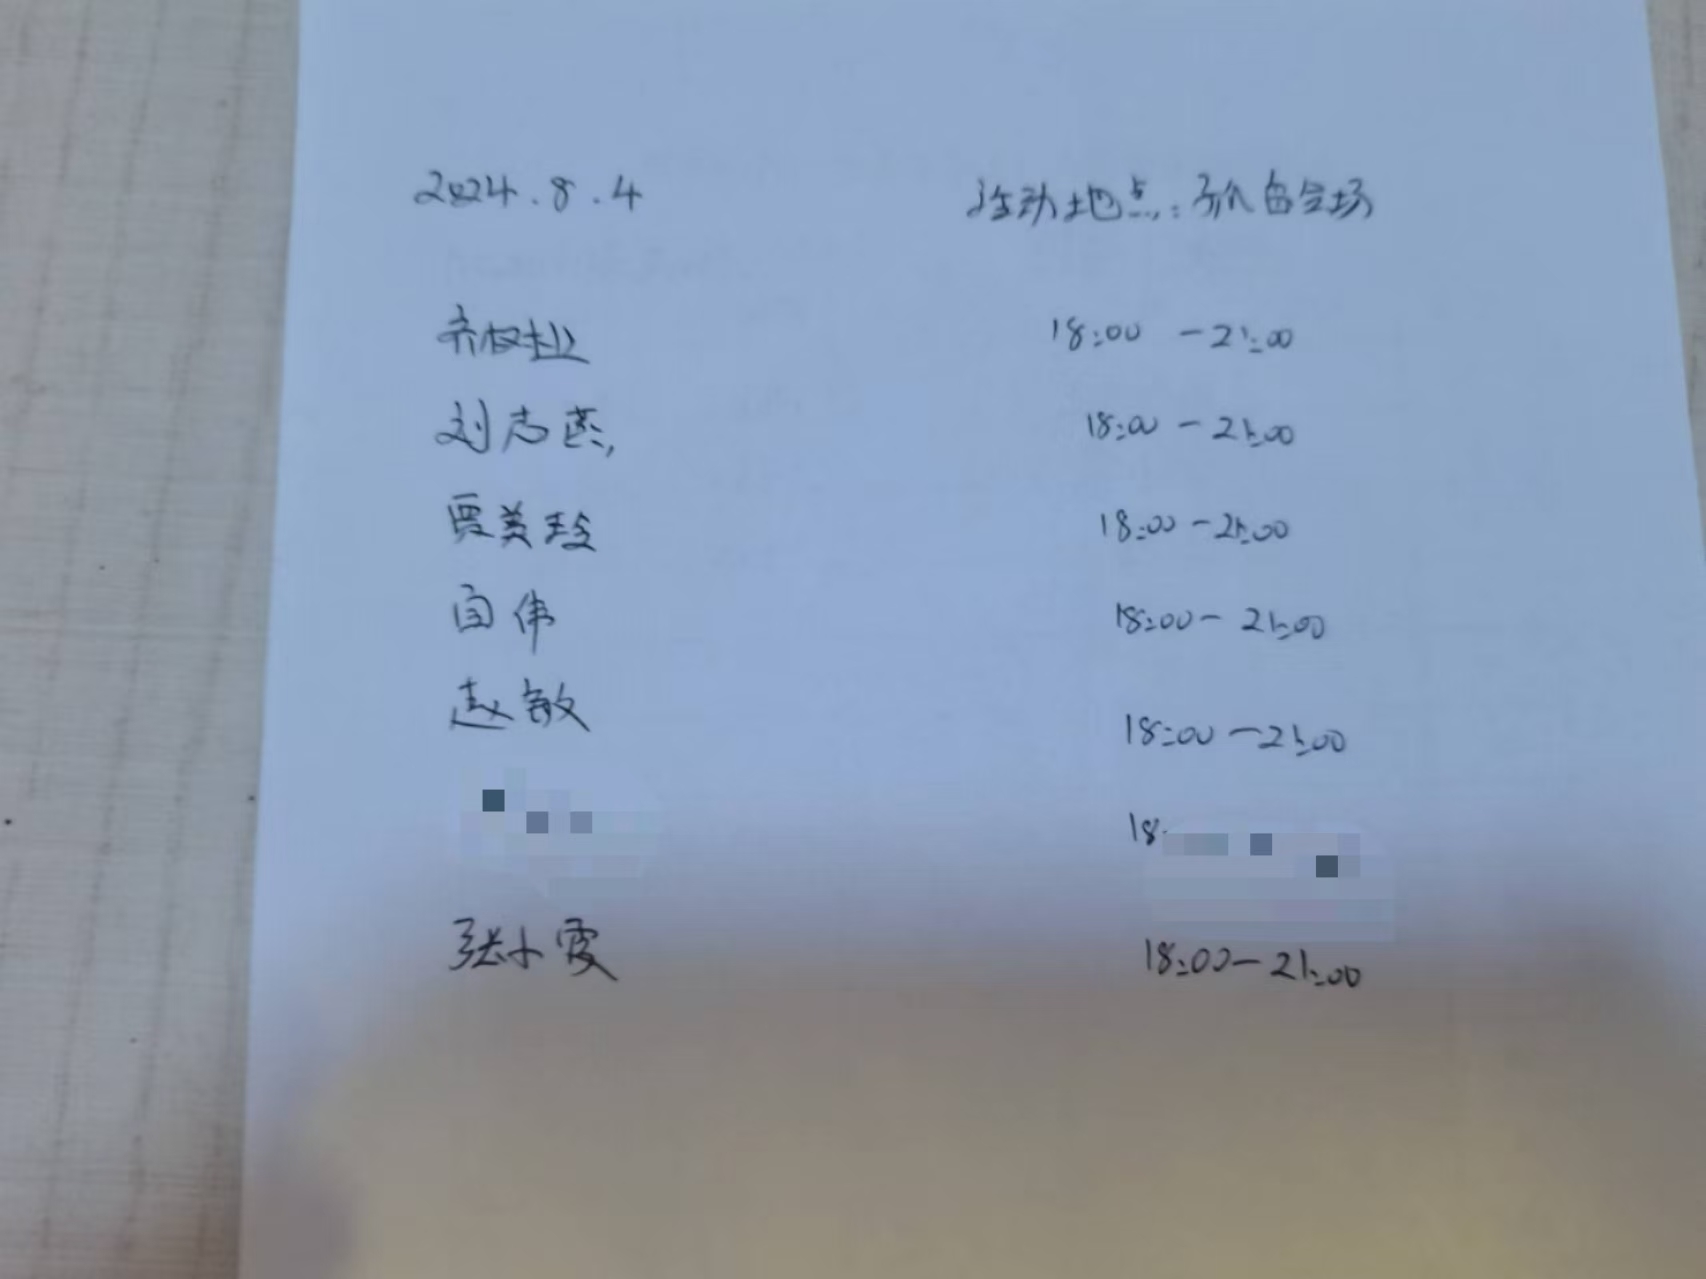 2024.8.4 活动地点: 孙白会场
齐权业 18:00 - 21:00
刘志燕, 18:00 - 21:00
贾美玲 18:00 - 21:00
闫伟 18:00 - 21:00
赵敏 18:00 - 21:00
18:
张小霞 18:00 - 21:00